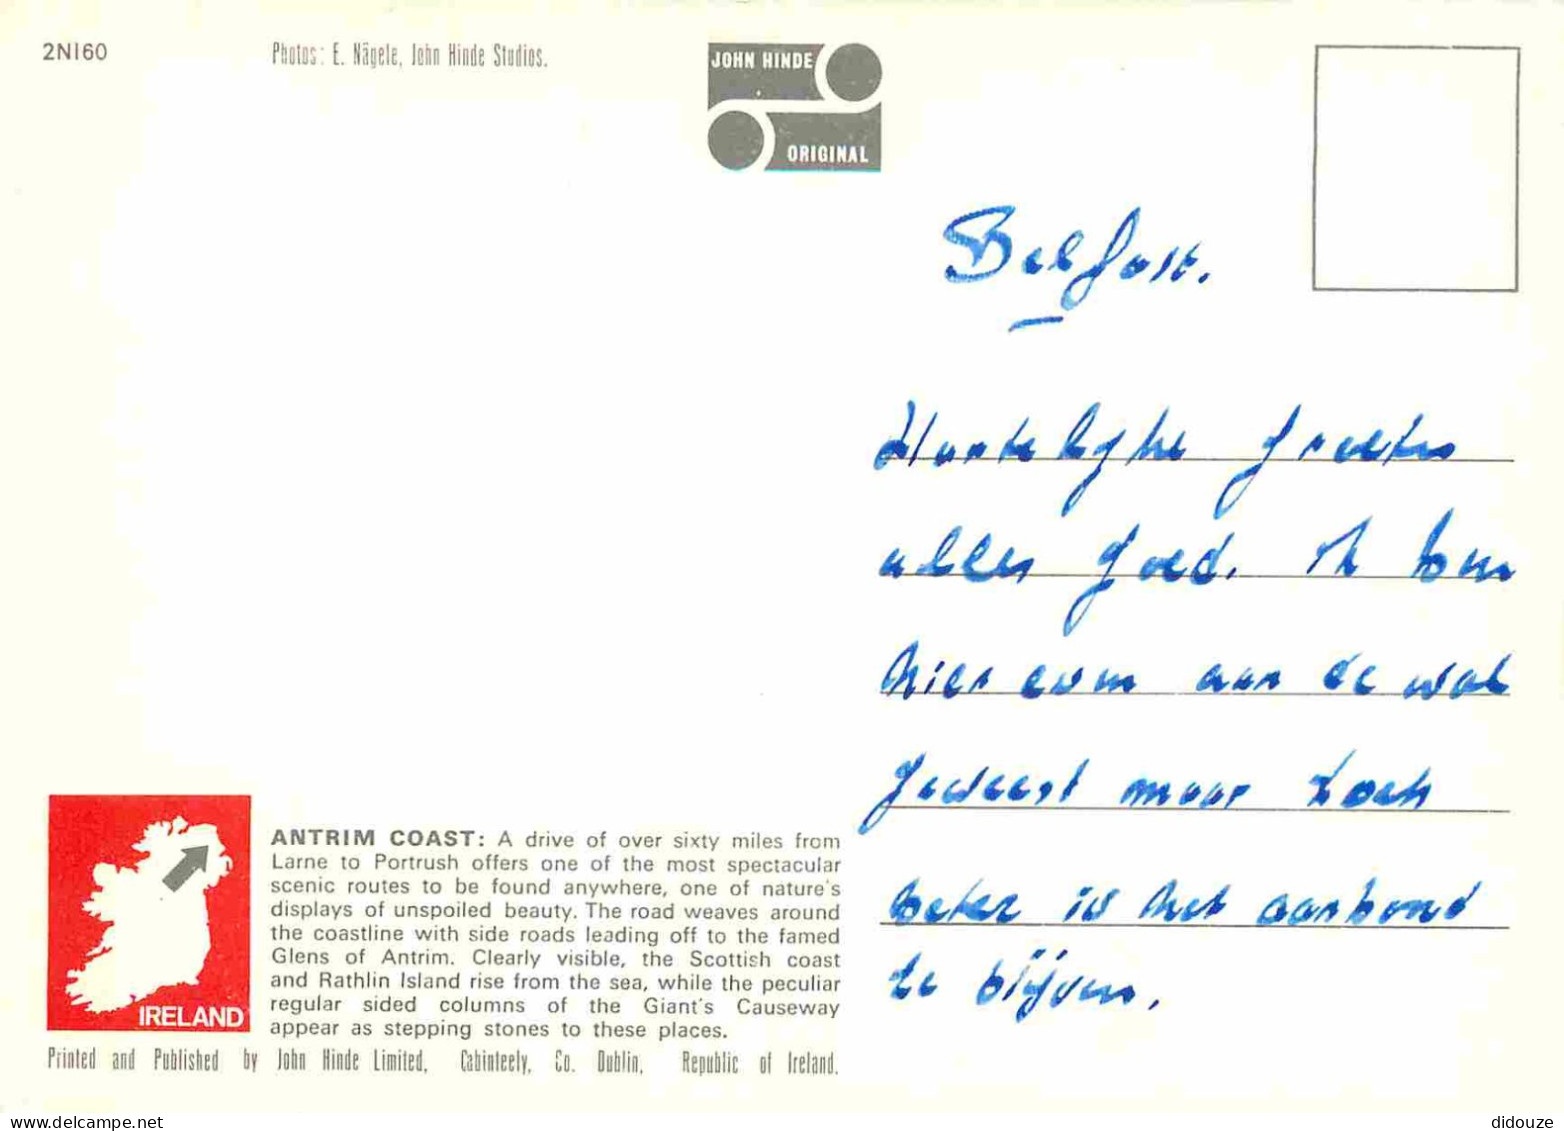 2NI60
Photos: E. Nägele, John Hinde Studios.
JOHN HINDE
ORIGINAL
Belfast.
Hartelijke groeten
alles goed. Ik ben
hier even aan de wal
geweest maar toch
beter is het aanboord
te blijven.
IRELAND
ANTRIM COAST: A drive of over sixty miles from
Larne to Portrush offers one of the most spectacular
scenic routes to be found anywhere, one of nature's
displays of unspoiled beauty. The road weaves around
the coastline with side roads leading off to the famed
Glens of Antrim. Clearly visible, the Scottish coast
and Rathlin Island rise from the sea, while the peculiar
regular sided columns of the Giant's Causeway
appear as stepping stones to these places.
Printed and Published by John Hinde Limited, Cabinteely, Co. Dublin, Republic of Ireland.
www.delcampe.net
didouze